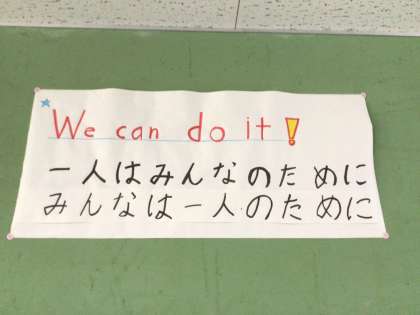 We can do it!
一人はみんなのために
みんなは一人のために